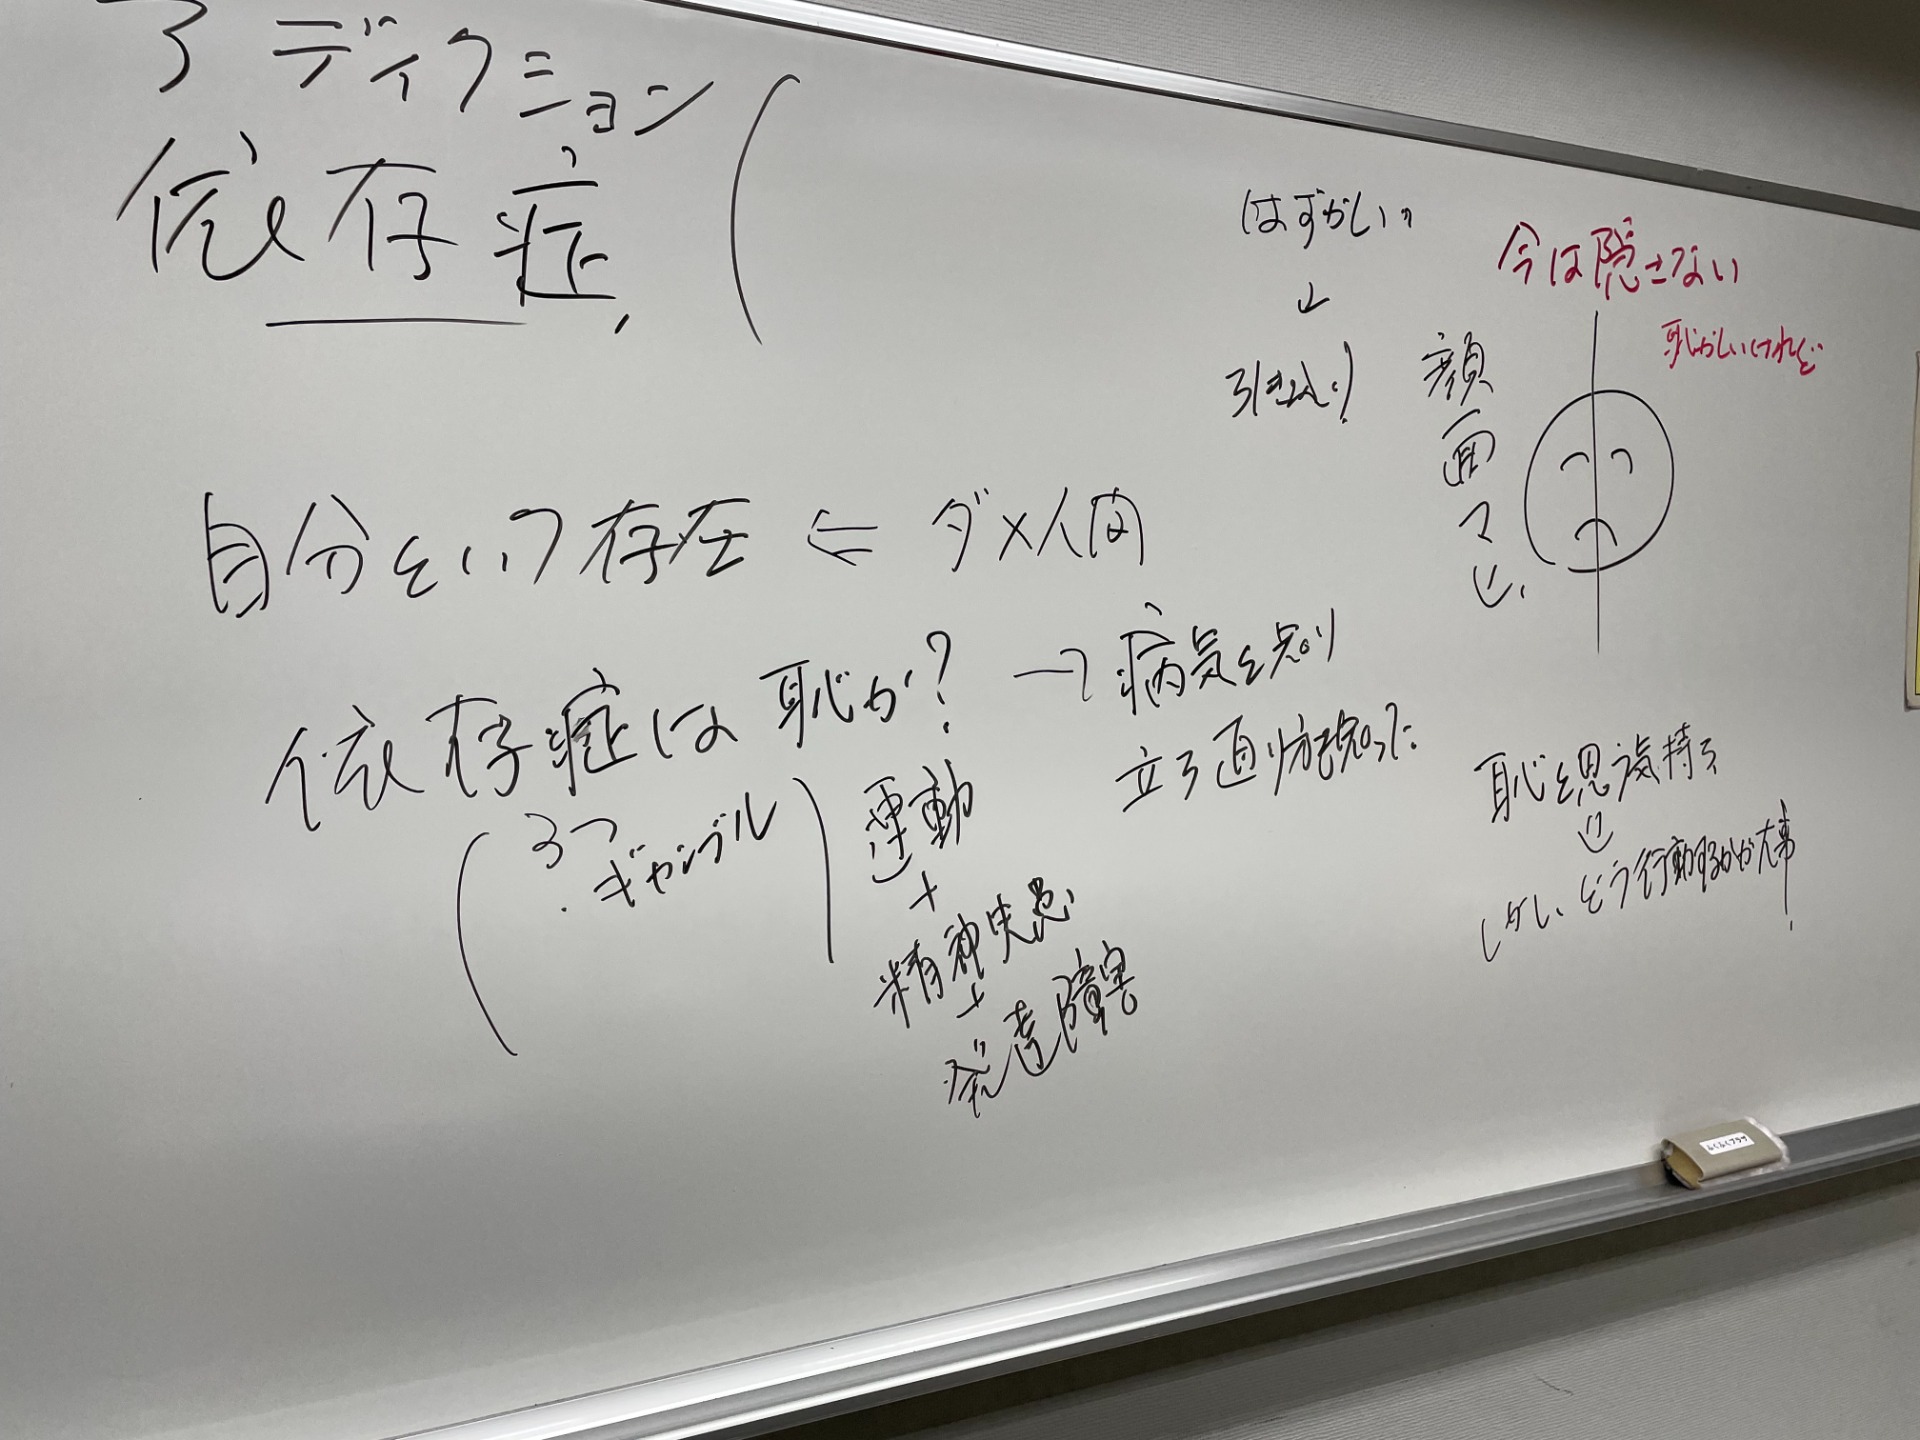 アディクション
依存症
はずかしい
↓
引きこもり
今は隠さない
恥かしいけれど
顔面マヒ
自分という存在 ⇐ ダメ人間
依存症は恥か? → 病気を知り
立ち直り方を知った
(3つ
・ギャンブル)
運動
+
精神疾患
+
発達障害
恥を思う気持ち
⇓
しかし、どう行動するかが大事
ふくふくプラザ